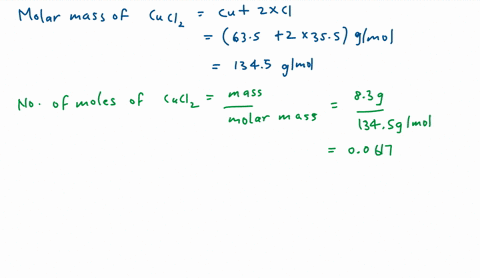 Molar mass of CuCl2 = Cu + 2×Cl
= (63.5 + 2×35.5) g/mol
= 134.5 g/mol
No. of moles of CuCl2 = mass / molar mass = 8.3g / 134.5g/mol
= 0.0617